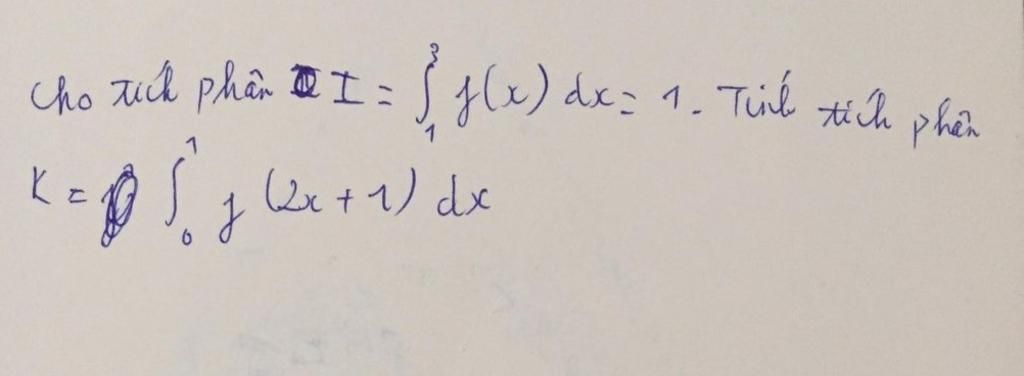 Cho tích phân I = ∫₁³ f(x) dx = 1. Tính tích phân
K = ∫₀¹ f(2x + 1) dx